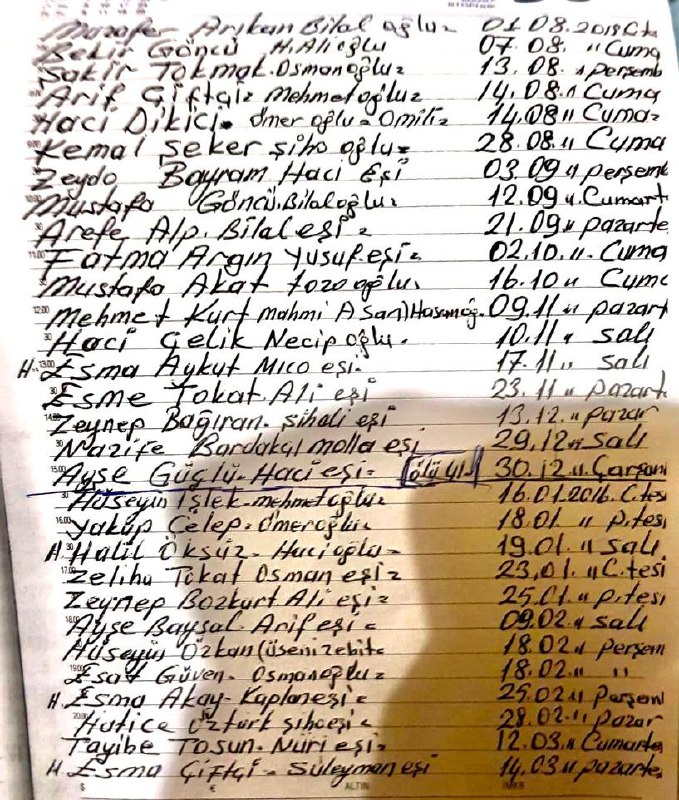 Muzafer Arıkan Bilal oğlu = 01.08.2015 C.te
Bekir Göncü H.Ali oğlu 07.08. " Cuma
Şakir Tokmak. Osmanoğlu = 13.08. " perşemb
Arif Çiftçi = Mehmetoğlu = 14.08. " Cuma
Haci Dikici. ömer oğlu = 14.08 " Cuma =
Kemal Şeker şiho oğlu = 28.08. " Cuma
Zeydo Bayram Haci Eşi 03.09 " perşemb
Mustafa Göncü. Bilaloğlu. 12.09 ". Cumart
Arefe Alp. Bilal eşi = 21.09 " pazarte
Fatma Argın yusuf. eşi = 02.10. ". Cuma
Mustafa Akat tozoğlu. 16.10 " Cuma
Mehmet Kurt mahmi Hasanoğ. 09.11 " pazart
Haci Çelik Necip oğlu. 10.11 " salı
H. Esma Aykut Mico eşi. 17.11. " Salı
Esme Tokat. Ali eşi 23.11 " pazart
Zeynep Bağıran. şihali eşi 13.12. " pazar
Nazife Bardakçı molla eşi 29.12 " salı
Ayşe Güçlü. Haci eşi = 30.12 ". Çarşam
Hüseyin İşlek. mehmetoğlu = 16.01.2016. C.tesi
yakup Celep. ömeroğlu. 18.01. " p.tesi
H. Halil Öksüz. Haci oğlu = 19.01. " salı
Zeliha Tokat Osman eşi = 23.01. " C.tesi
Zeynep Bozkurt Ali eşi = 25.01 " p.tesi
Ayşe Baysal. Arif eşi = 09.02 " salı
Hüseyin Özkan 18.02 " perşem
Esat Güven. Osmanoğlu = 18.02. " "
H. Esma Akay - Kaplan eşi = 25.02 " perşem
Hatice Öztürk şiho eşi = 28.02. " pazar
Tayibe Tosun. Nuri eşi = 12.03. " Cumarte
H Esma Çiftçi = Süleyman eşi 14.03 " pazarte
$ € ALTIN İMKB